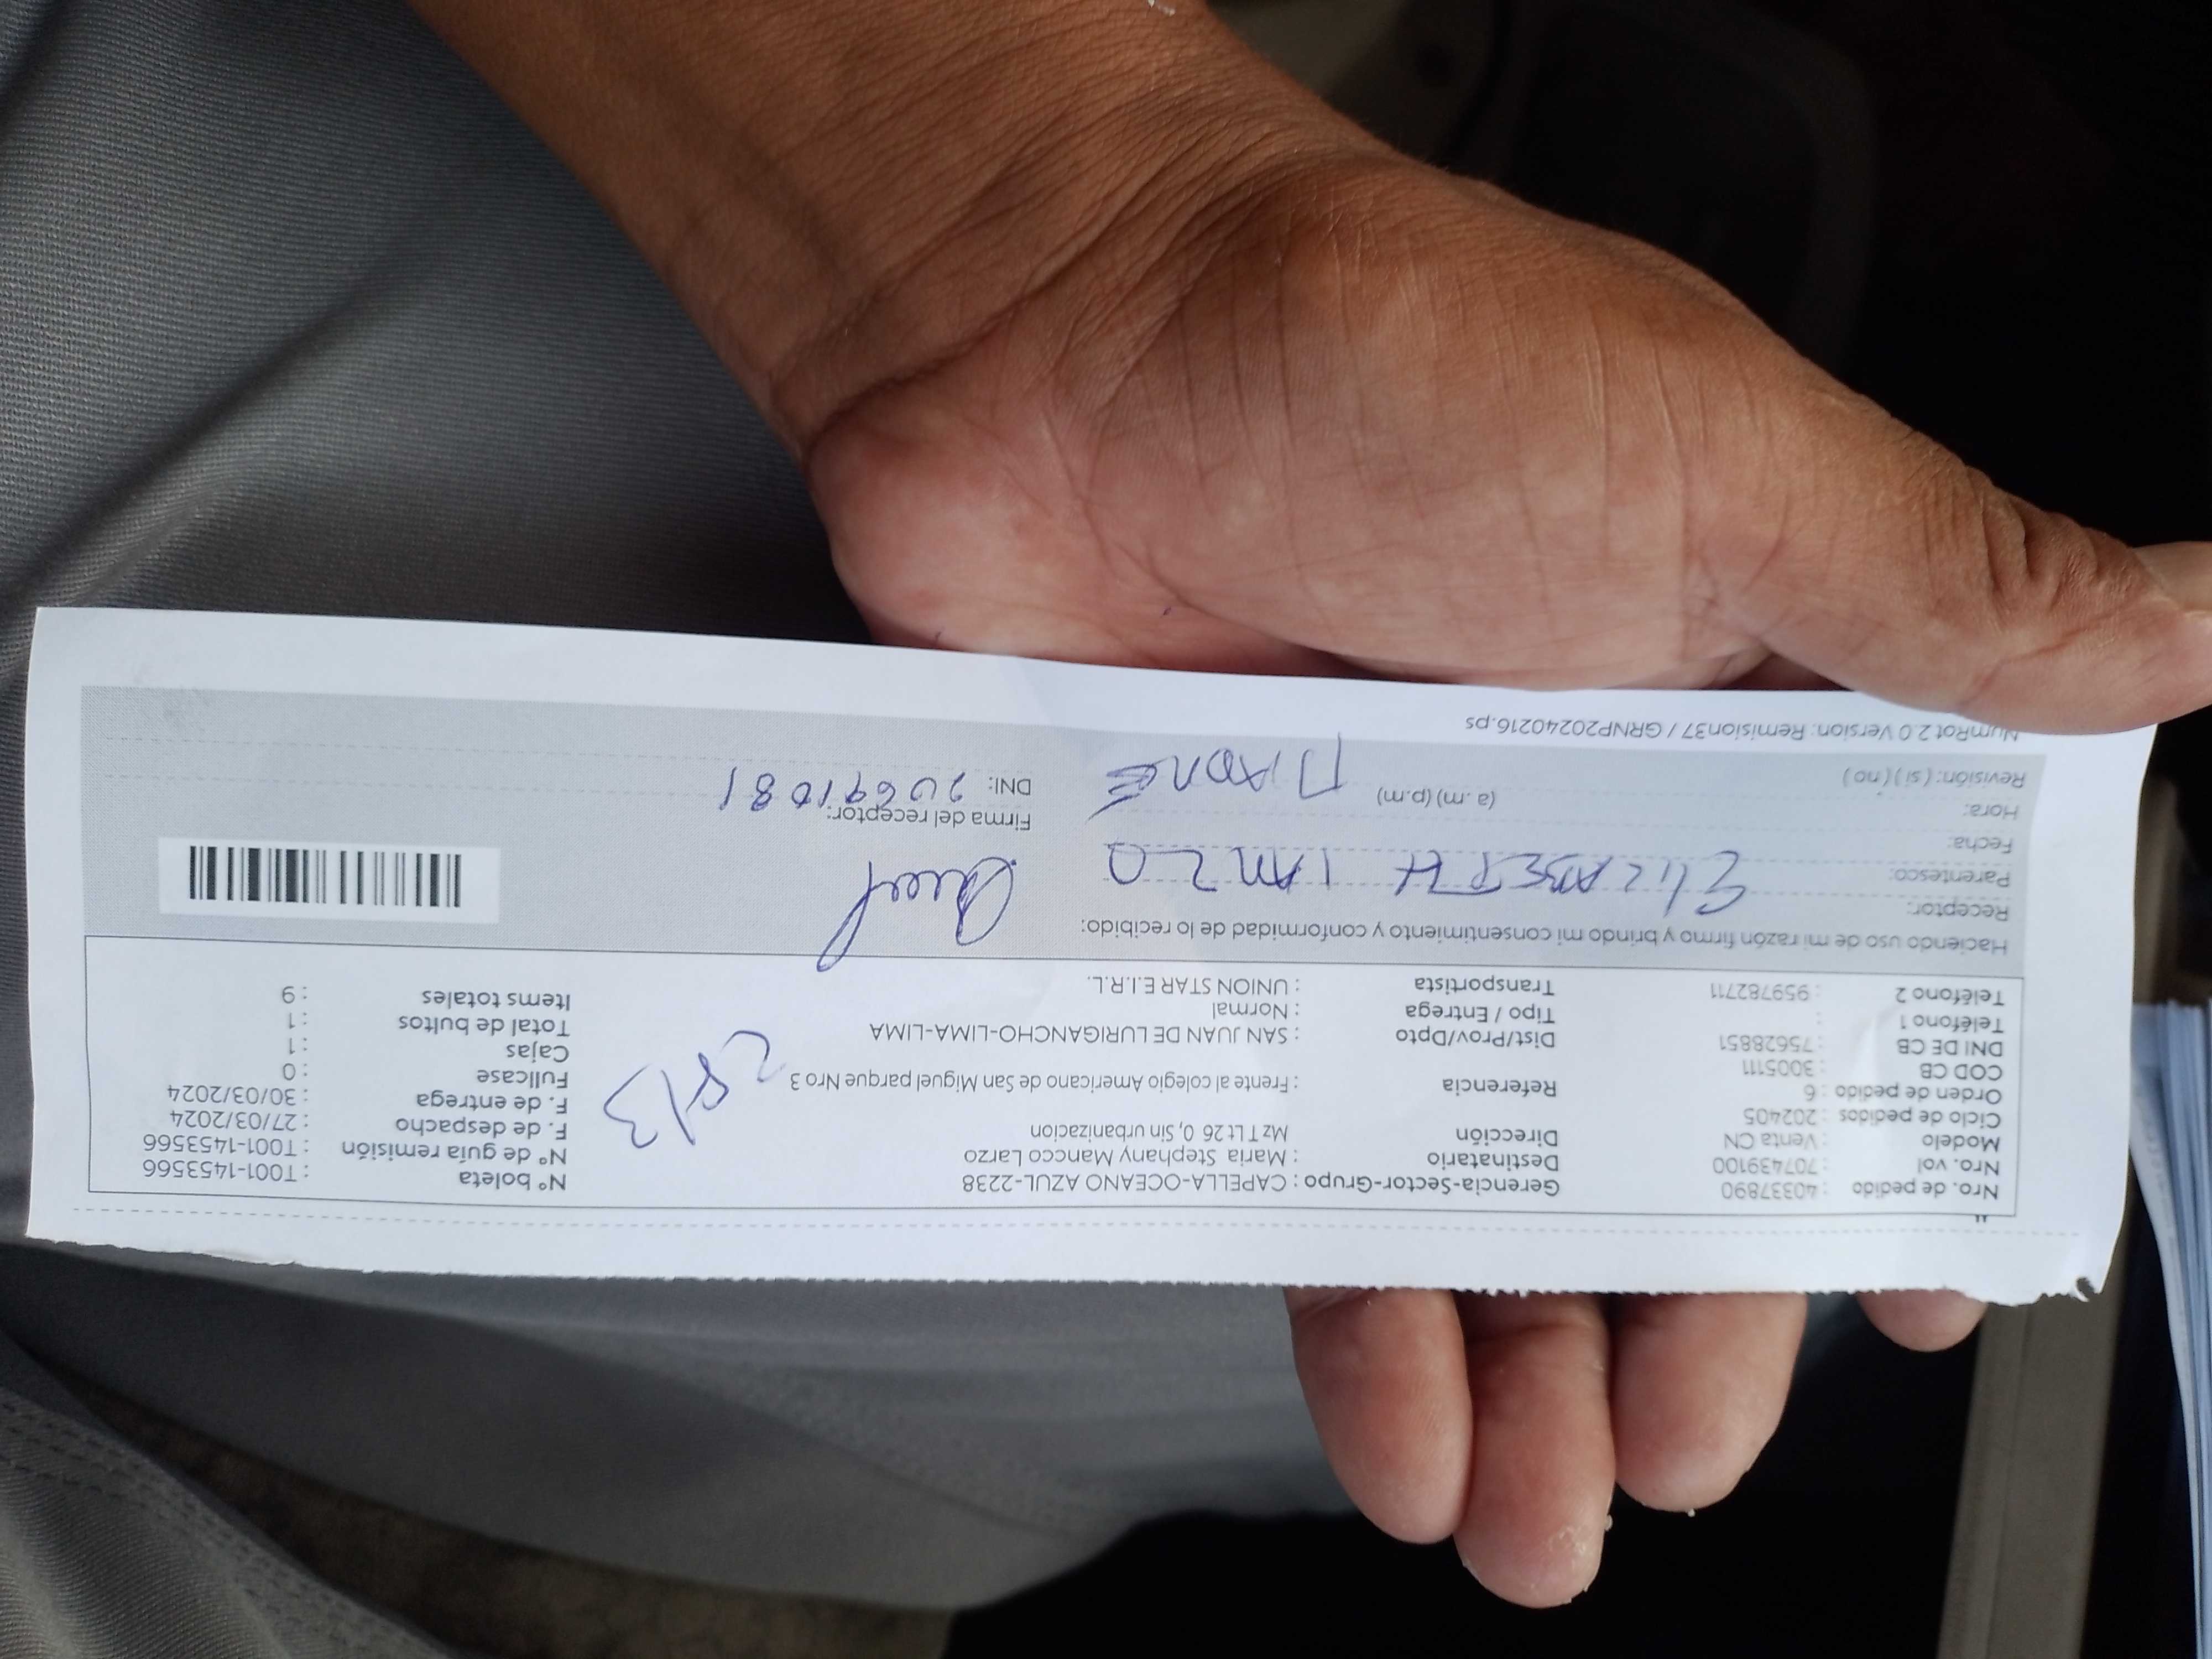 Nro. de pedido : 40337890
Nro. vol : 707439100
Modelo : Venta CN
Ciclo de pedidos : 202405
Orden de pedido : 6
COD CB : 3005111
DNI DE CB : 75628851
Teléfono 1 :
Teléfono 2 : 959782711
Gerencia-Sector-Grupo : CAPELLA-OCEANO AZUL-2238
Destinatario : Maria Stephany Mancco Larzo
Dirección Mz T Lt 26 0, Sin urbanizacion
Referencia : Frente al colegio Americano de San Miguel parque Nro 3
Dist/Prov/Dpto : SAN JUAN DE LURIGANCHO-LIMA-LIMA
Tipo / Entrega : Normal
Transportista : UNION STAR E.I.R.L.
N° boleta : T001-1453566
N° de guía remisión : T001-1453566
F. de despacho : 27/03/2024
F. de entrega : 30/03/2024
Fullcase : 0
Cajas : 1
Total de bultos : 1
Items totales : 9
Haciendo uso de mi razón firmo y brindo mi consentimiento y conformidad de lo recibido:
Receptor:
Parentesco:
ELIZABETH
Fecha:
Hora: (a. m) (p.m)
MADRE
Revisión: ( si ) ( no )
Firma del receptor:
DNI: 20691081
NumRot 2.0 Version: Remision37 / GRNP20240216.ps